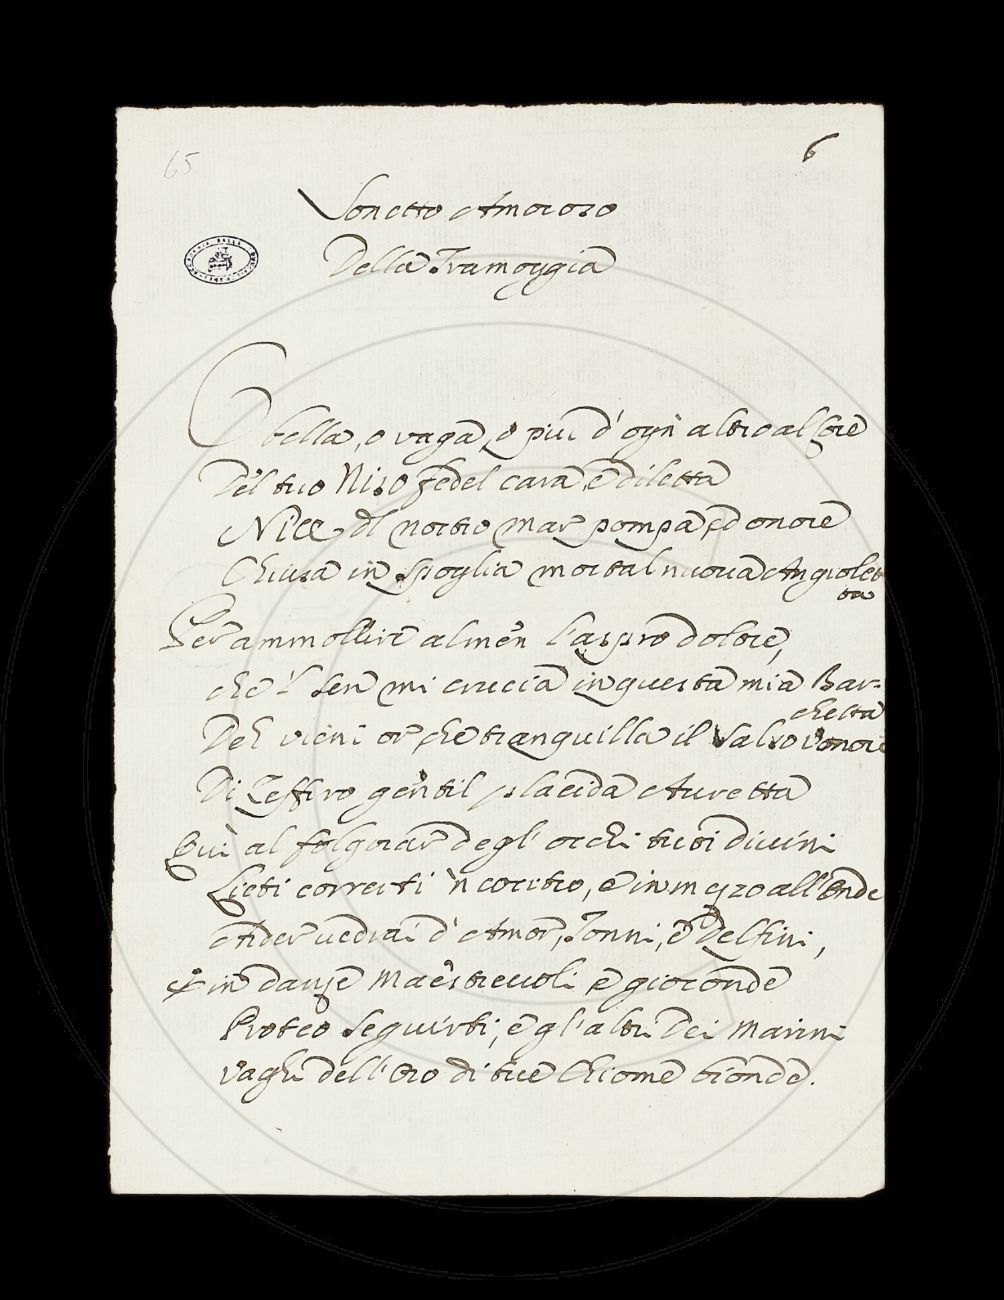 65
6
Sonetto Amoroso
Della Tramoggia
O bella, o vaga, o più d'ogn'altro al core
Del tuo Niso fedel cara, e diletta
Nice, del nostro mar pompa, ed onore
Chiusa in spoglia mortal nuova Angiolet
ta
Per ammollire almen l'aspro dolore,
che 'l sen mi crucia in questa mia Bar-
chetta
Deh vieni or che tranquilla il salso umore
Di Zeffiro gentil placida Auretta
Qui al folgorar degl'occhi tuoi divini
Lieti correrti incontro, e in mezzo all'Onde
Arder vedrai d'Amor, Tonni, e Delfini,
E in danze Maestrevoli e gioconde
Proteo seguirti, e gl'altri Dei Marini
vaghi dell'Oro di tue Chiome bionde.